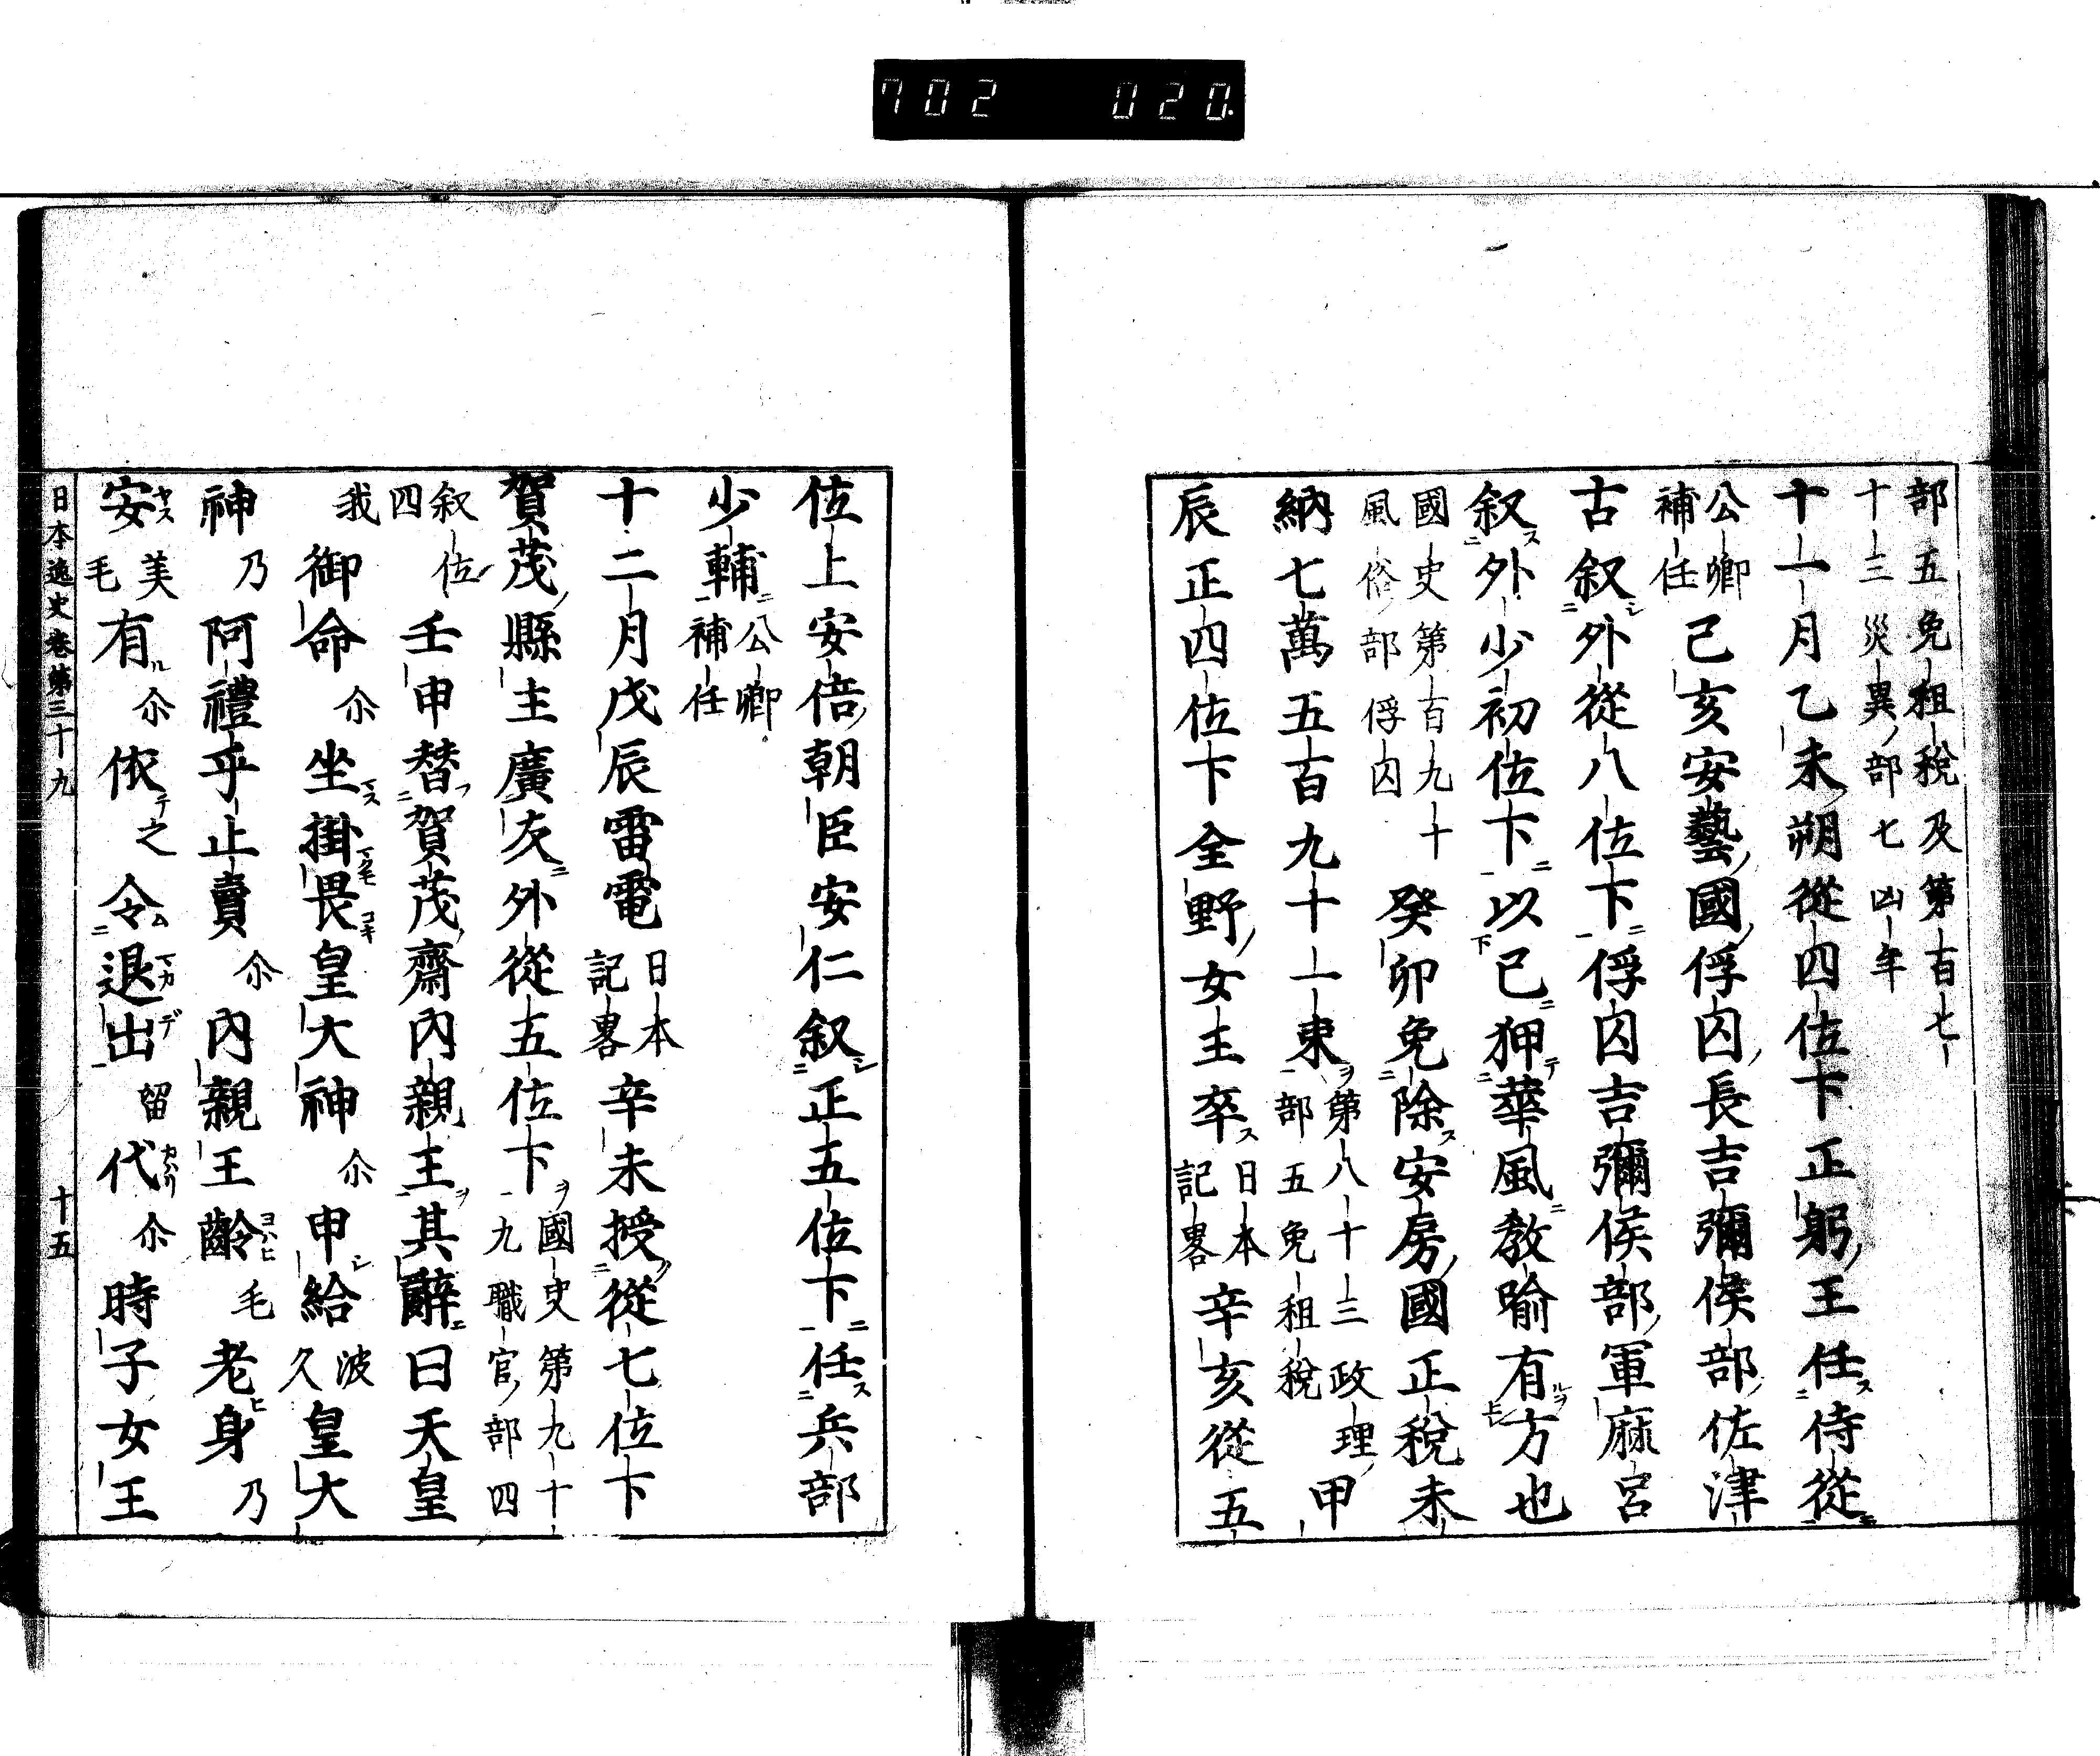 702 020.
部五免租稅及第百七
十三災異部七凶年
十一月乙未朔從四位下正躬王任侍從
公卿補任己亥安藝國俘囚長吉彌侯部佐津
古叙外從八位下俘囚吉彌侯部軍麻呂
叙外少初位下以已狎華風教喻有方也
國史第百九十風俗部俘囚癸卯免除安房國正稅未
納七萬五百九十一束第八十三政理部五免租稅甲
辰正四位下全野女王卒日本記畧辛亥從五
位上安倍朝臣安仁叙正五位下任兵部
少輔公卿補任
十二月戊辰雷電日本記畧辛未授從七位下
賀茂縣主廣友外從五位下國史第九十九職官部四
叙位四壬申替賀茂齋內親王其辭曰天皇
我御命尒坐掛畏皇大神尒申給波久皇大
神乃阿禮乎止賣尒內親王齡毛老身乃
安美毛有尒依之令退出留代尒時子女王
日本逸史卷第三十九 十五